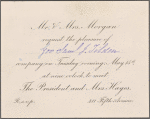 Mr. & Mrs. Morgan
request the pleasure of
Gov. Saml. J. Tilden
company on Tuesday evening, May 15th
at nine o'clock, to meet
The President and Mrs. Hayes.
R.s.v.p. Fifth Avenue.